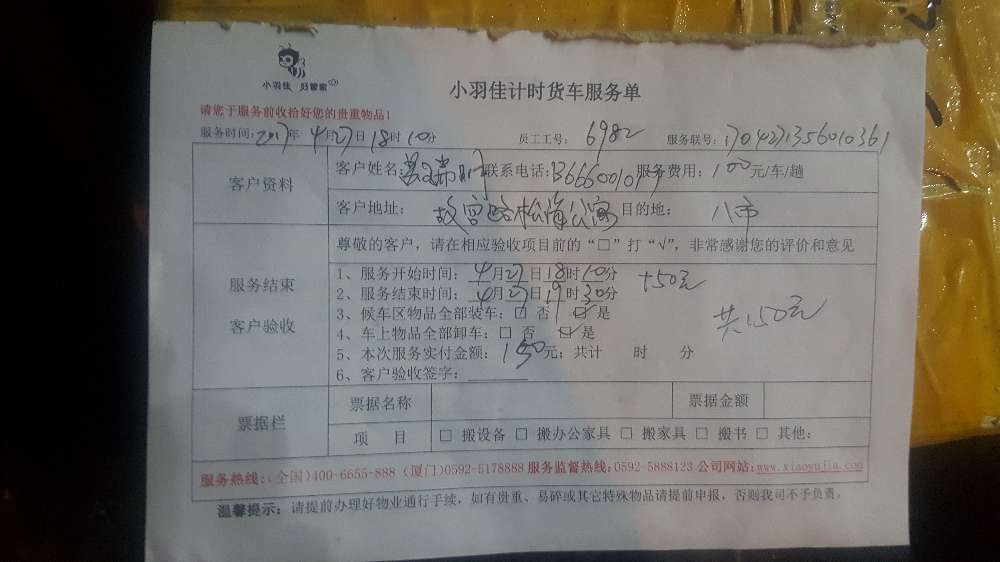 小羽佳 好管家
小羽佳计时货车服务单
请您于服务前收拾好您的贵重物品!
服务时间:2017年4月27日18时10分 员工工号: 6982 服务联号:
客户资料
客户姓名: 联系电话: 服务费用: 100元/车/趟
客户地址: 故宫路松海公寓 目的地: 八市
服务结束
客户验收
尊敬的客户,请在相应验收项目前的“□”打“√”,非常感谢您的评价和意见
1、服务开始时间: 4月27日18时10分 +50元
2、服务结束时间: 4月27日19时30分
3、候车区物品全部装车:□ 否 ☑ 是 共150元
4、车上物品全部卸车:□ 否 ☑ 是
5、本次服务实付金额: 150元; 共计 时 分
6、客户验收签字:
票据栏
票据名称 票据金额
项 目 □ 搬设备 □ 搬办公家具 □ 搬家具 □ 搬书 □ 其他:
服务热线:(全国)400-6655-888 (厦门)0592-5178888 服务监督热线:0592-5888123 公司网站:www.xiaoyujia.com
温馨提示: 请提前办理好物业通行手续,如有贵重、易碎或其它特殊物品请提前申报,否则我司不予负责。